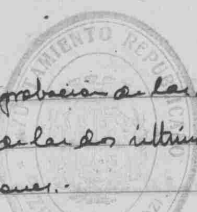 AYUNTAMIENTO REPUBLICANO
probacion de la
de las dos ultim
ones.-